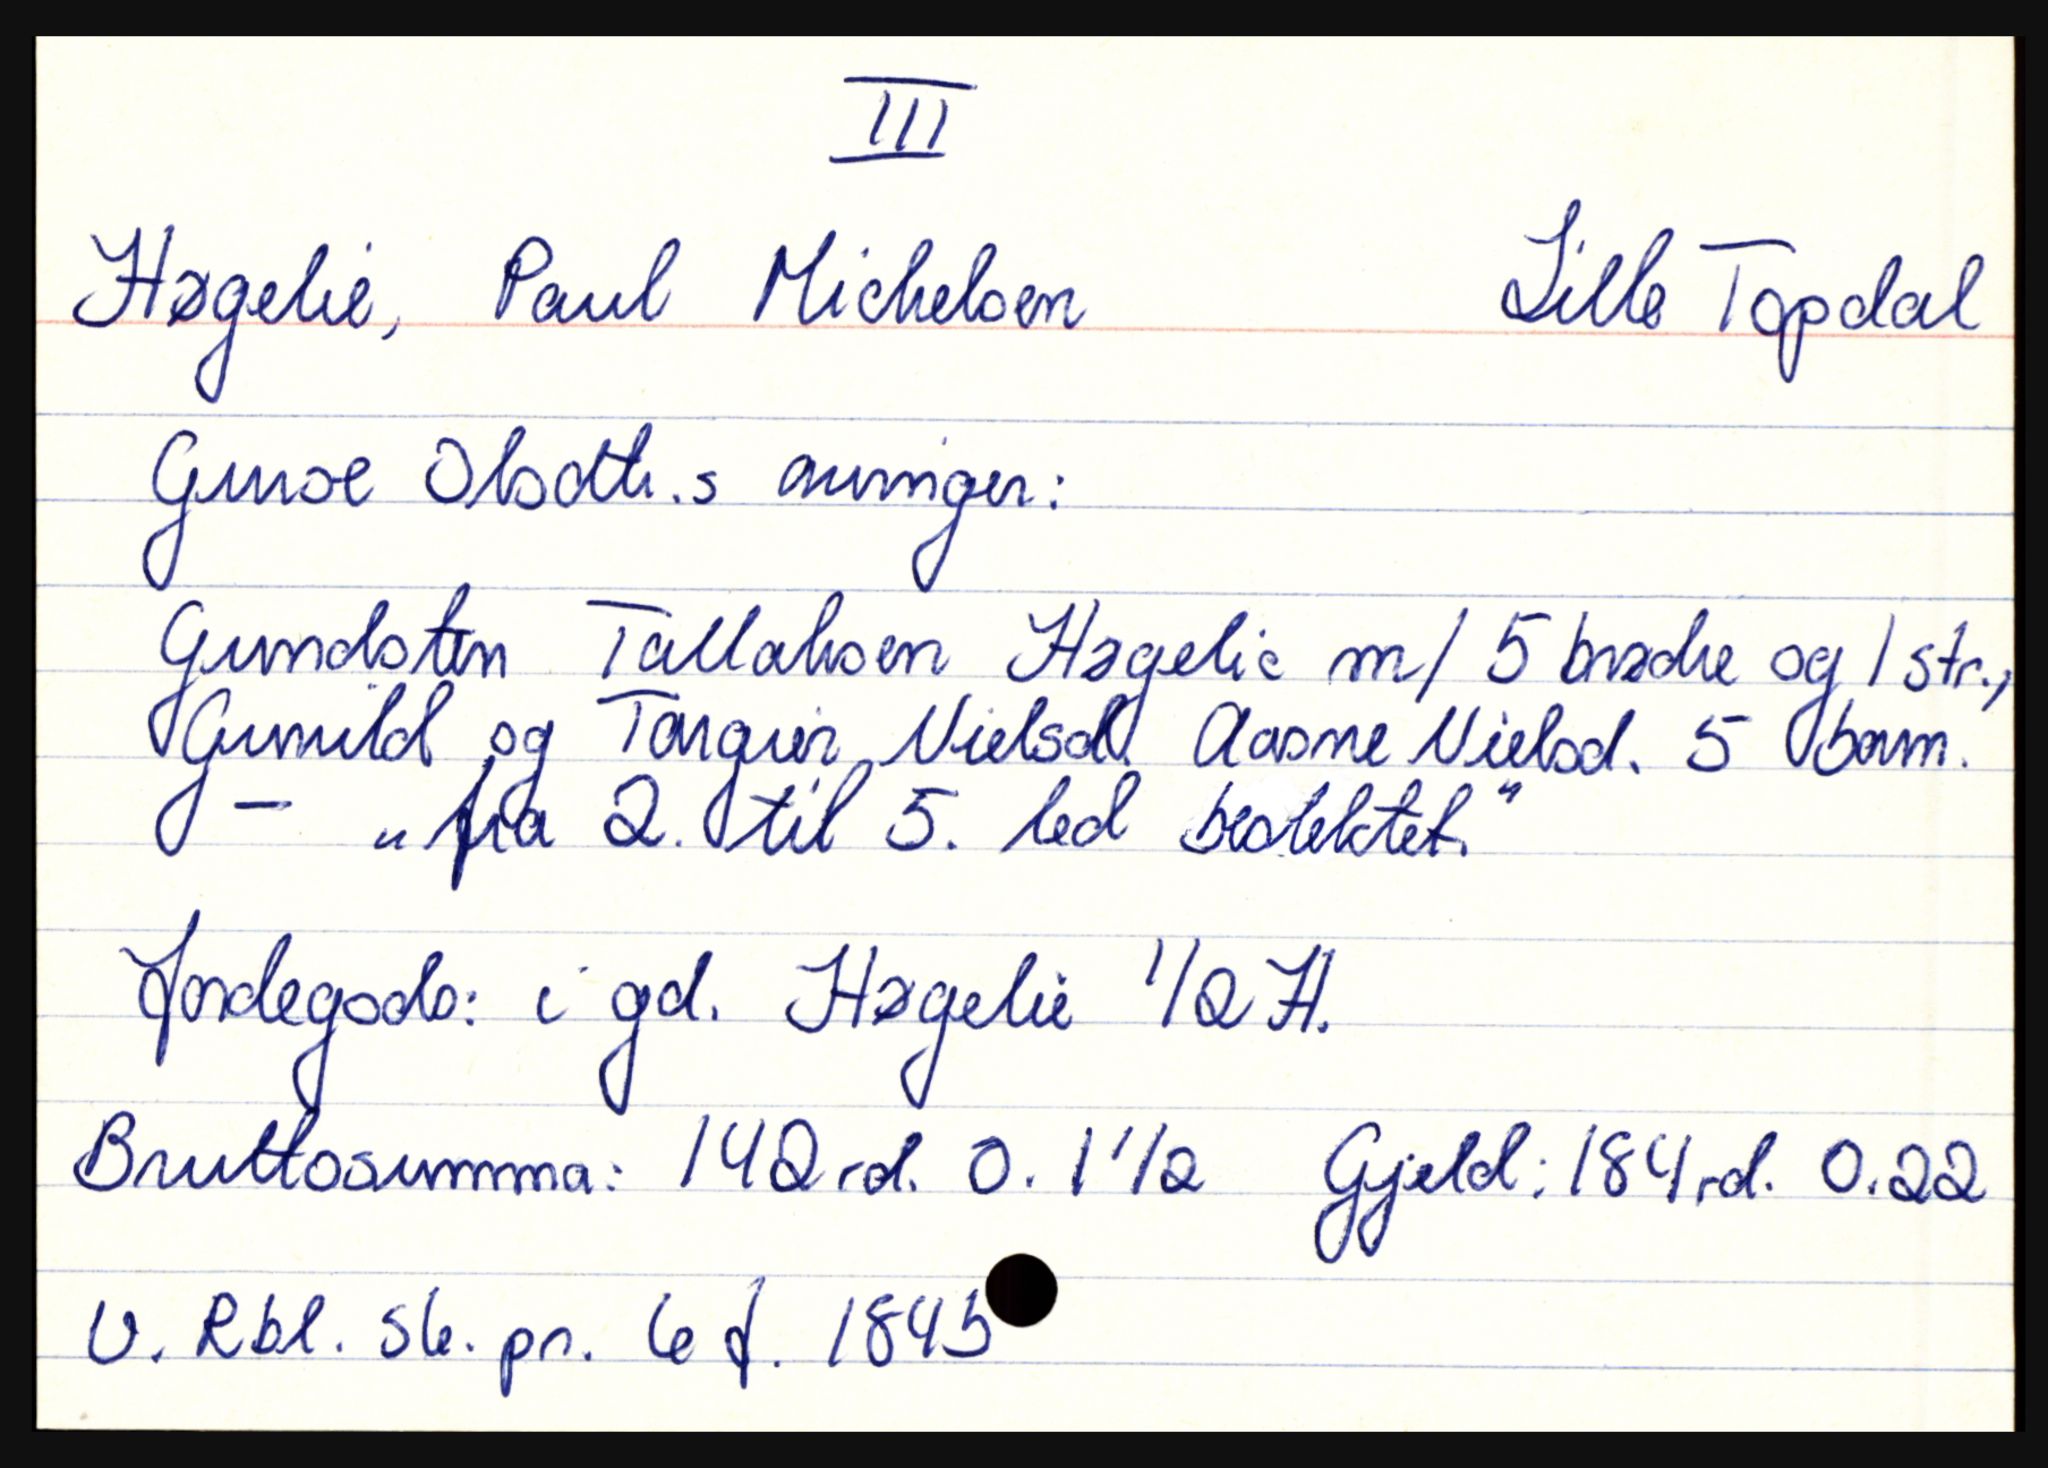 III
Høgelie, Paul Michelsen Lille Topdal
Gunvel Olsdtr.s arvinger:
Gundsten Tallaksen Høgelie m/ 5 brødre og 1 str.,
Gunnild og Targier Nielsd. Aasne Nielsd. 5 barn.
— „fra 2. til 5. led beslektet."
Jordegods: i gd. Høgelie 1/2 H.
Bruttosumma: 142 rd. 0. 1 1/2 Gjeld: 184 rd. 0.22
V. Rbl. Sk. pr. 6 f. 1845